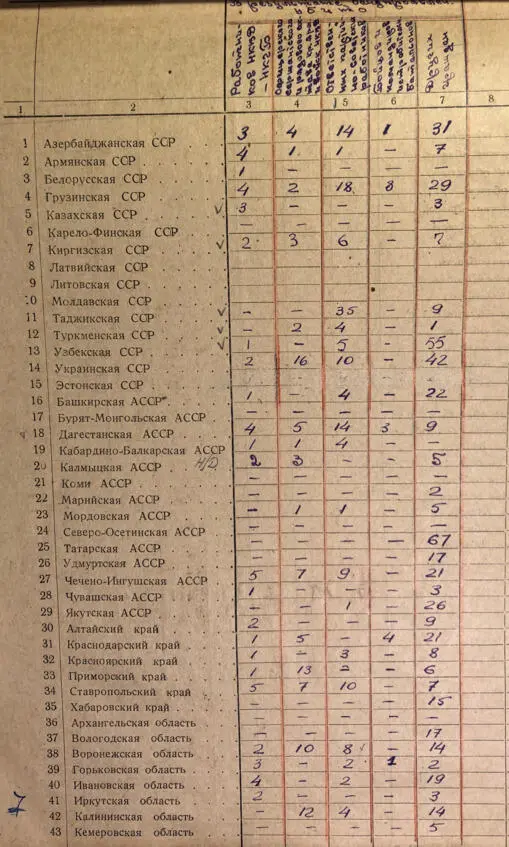 убито
Работни-
ков НКВД
— НКГБ
Ответствен-
ных партий-
но-советских
работников
Бойцов и
командиров
истребительн.
батальонов
Других
граждан
1 2 3 4 5 6 7 8
1 Азербайджанская ССР . . . 3 4 14 1 31
2 Армянская ССР . . . . . 4 1 1 — 7
3 Белорусская ССР . . . . 1 — — — —
4 Грузинская ССР . . . . . 4 2 18 8 29
5 Казахская ССР . . . . . √ 3 — — — 3
6 Карело-Финская ССР . . . . — — — — —
7 Киргизская ССР . . . . . √ 2 3 6 — 7
8 Латвийская ССР . . . . .
9 Литовская ССР . . . . .
10 Молдавская ССР . . . . .
11 Таджикская ССР . . . . √ — — 35 — 9
12 Туркменская ССР . . . . √ — 2 4 — 1
13 Узбекская ССР . . . . . √ 1 — 5 — 55
14 Украинская ССР . . . . . 2 16 10 — 42
15 Эстонская ССР . . . . .
16 Башкирская АССР . . . . 1 — 4 — 22
17 Бурят-Монгольская АССР . . — — — — —
18 Дагестанская АССР . . . . 4 5 14 3 9
19 Кабардино-Балкарская АССР 1 1 4 — —
20 Калмыцкая АССР . . . Н/Д 2 3 — — 5
21 Коми АССР . . . . . . — — — — —
22 Марийская АССР . . . . . — — — — 2
23 Мордовская АССР . . . . — 1 1 — 5
24 Северо-Осетинская АССР . . — — — — —
25 Татарская АССР . . . . . — — — — 67
26 Удмуртская АССР . . . . — — — — 17
27 Чечено-Ингушская АССР . . 5 7 9 — 21
28 Чувашская АССР . . . . . 1 — — — 3
29 Якутская АССР . . . . . — — 1 — 26
30 Алтайский край . . . . . 2 — — — 9
31 Краснодарский край . . . . 1 5 — 4 21
32 Красноярский край . . . . 1 — 3 — 8
33 Приморский край . . . . 1 13 2 — 6
34 Ставропольский край . . . 5 7 10 — 7
35 Хабаровский край . . . . — — — — 15
36 Архангельская область . . . — — — — —
37 Вологодская область . . . — — — — 17
38 Воронежская область . . . 2 10 8 — 14
39 Горьковская область . . . 3 — 2 1 2
40 Ивановская область . . . . 4 — 2 — 19
41 Иркутская область . . . . 2 — — — 3
7
42 Калининская область . . . — 12 4 — 14
43 Кемеровская область . . . — — — — 5